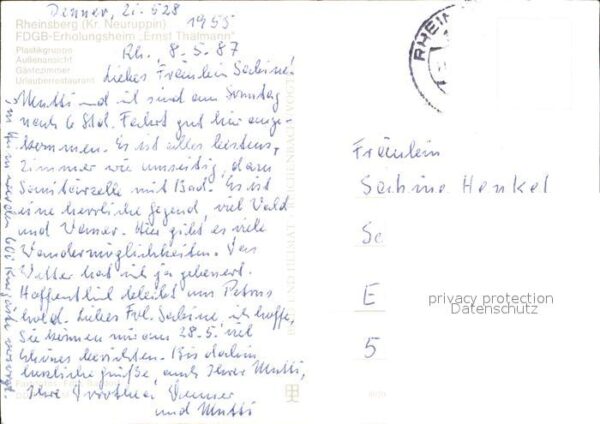 Denner, Zi. 528
1955
Rheinsberg (Kr. Neuruppin)
FDGB-Erholungsheim „Ernst Thälmann"
Plastikgruppe
Außenansicht
Gästezimmer
Urlauberrestaurant
Rh. 8.5.87
Liebes Fräulein Sabine!
Mutti und ich sind am Sonntag
nach 6 Std. Fahrt gut hier ange-
kommen. Es ist alles bestens,
Zimmer wie umseitig, dazu
Sanitärzelle mit Bad. Es ist
eine herrliche Gegend, viel Wald
und Wasser. Hier gibt es viele
Wandermöglichkeiten. Das
Wetter hat sich ja gebessert.
Hoffentlich bleibt uns Petrus
hold. Liebes Frl. Sabine ich hoffe,
Sie können mir am 28.5. viel
Schönes berichten. Bis dahin
herzliche Grüße, auch Ihrer Mutti,
Ihre Dorothea Denner
und Mutti
werden 600 Urlauber versorgt.
RHEIN
Fräulein
Sabine Henkel
Se
E
5
privacy protection
Datenschutz